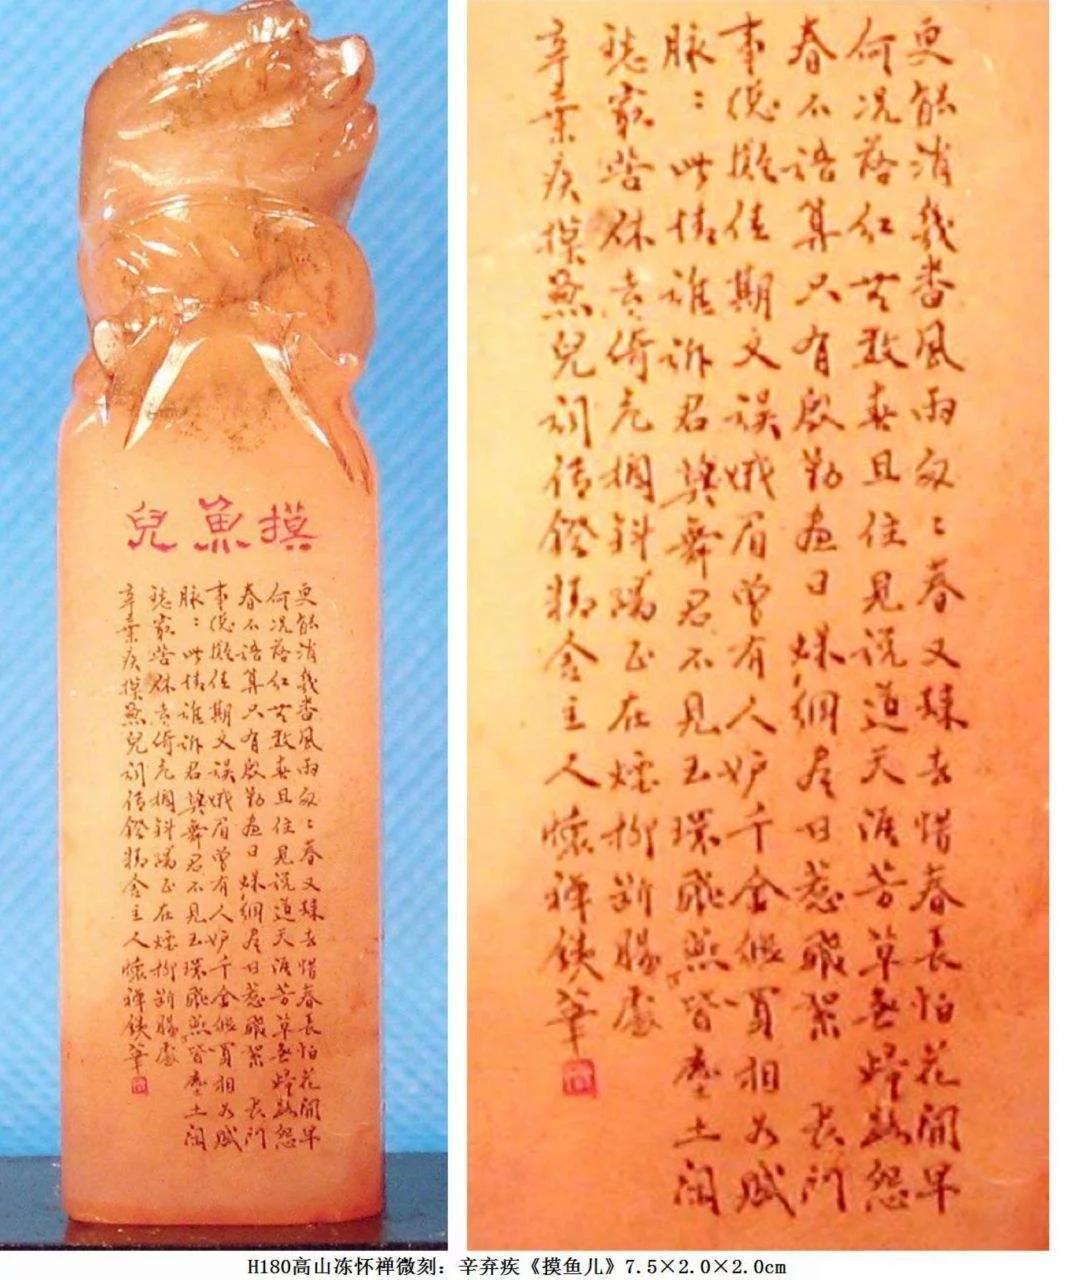 摸魚兒
更能消幾番風雨匆〻春又歸去惜春長怕花開早
何况落紅無數春且住見説道天涯芳草無歸路怨
春不語算只有殷勤画日蛛網尽日惹飛絮 長門
事總擬佳期又誤娥眉曾有人妒千金縱買相如賦
脉〻此情誰訴君莫舞君不見玉環飛燕皆塵土閑
愁最苦休去倚危欄斜陽正在煙柳斷腸處
辛棄疾摸魚兒詞傳鐙精舍主人懷禪鐵筆
更能消幾番風雨匆〻春又歸去惜春長怕花開早
何况落紅無數春且住見説道天涯芳草無歸路怨
春不語算只有殷勤画日蛛網尽日惹飛絮 長門
事總擬佳期又誤娥眉曾有人妒千金縱買相如賦
脉〻此情誰訴君莫舞君不見玉環飛燕皆塵土閑
愁最苦休去倚危欄斜陽正在煙柳斷腸處
辛棄疾摸魚兒詞傳鐙精舍主人懷禪鐵筆
H180高山冻怀禅微刻：辛弃疾《摸鱼儿》7.5×2.0×2.0cm